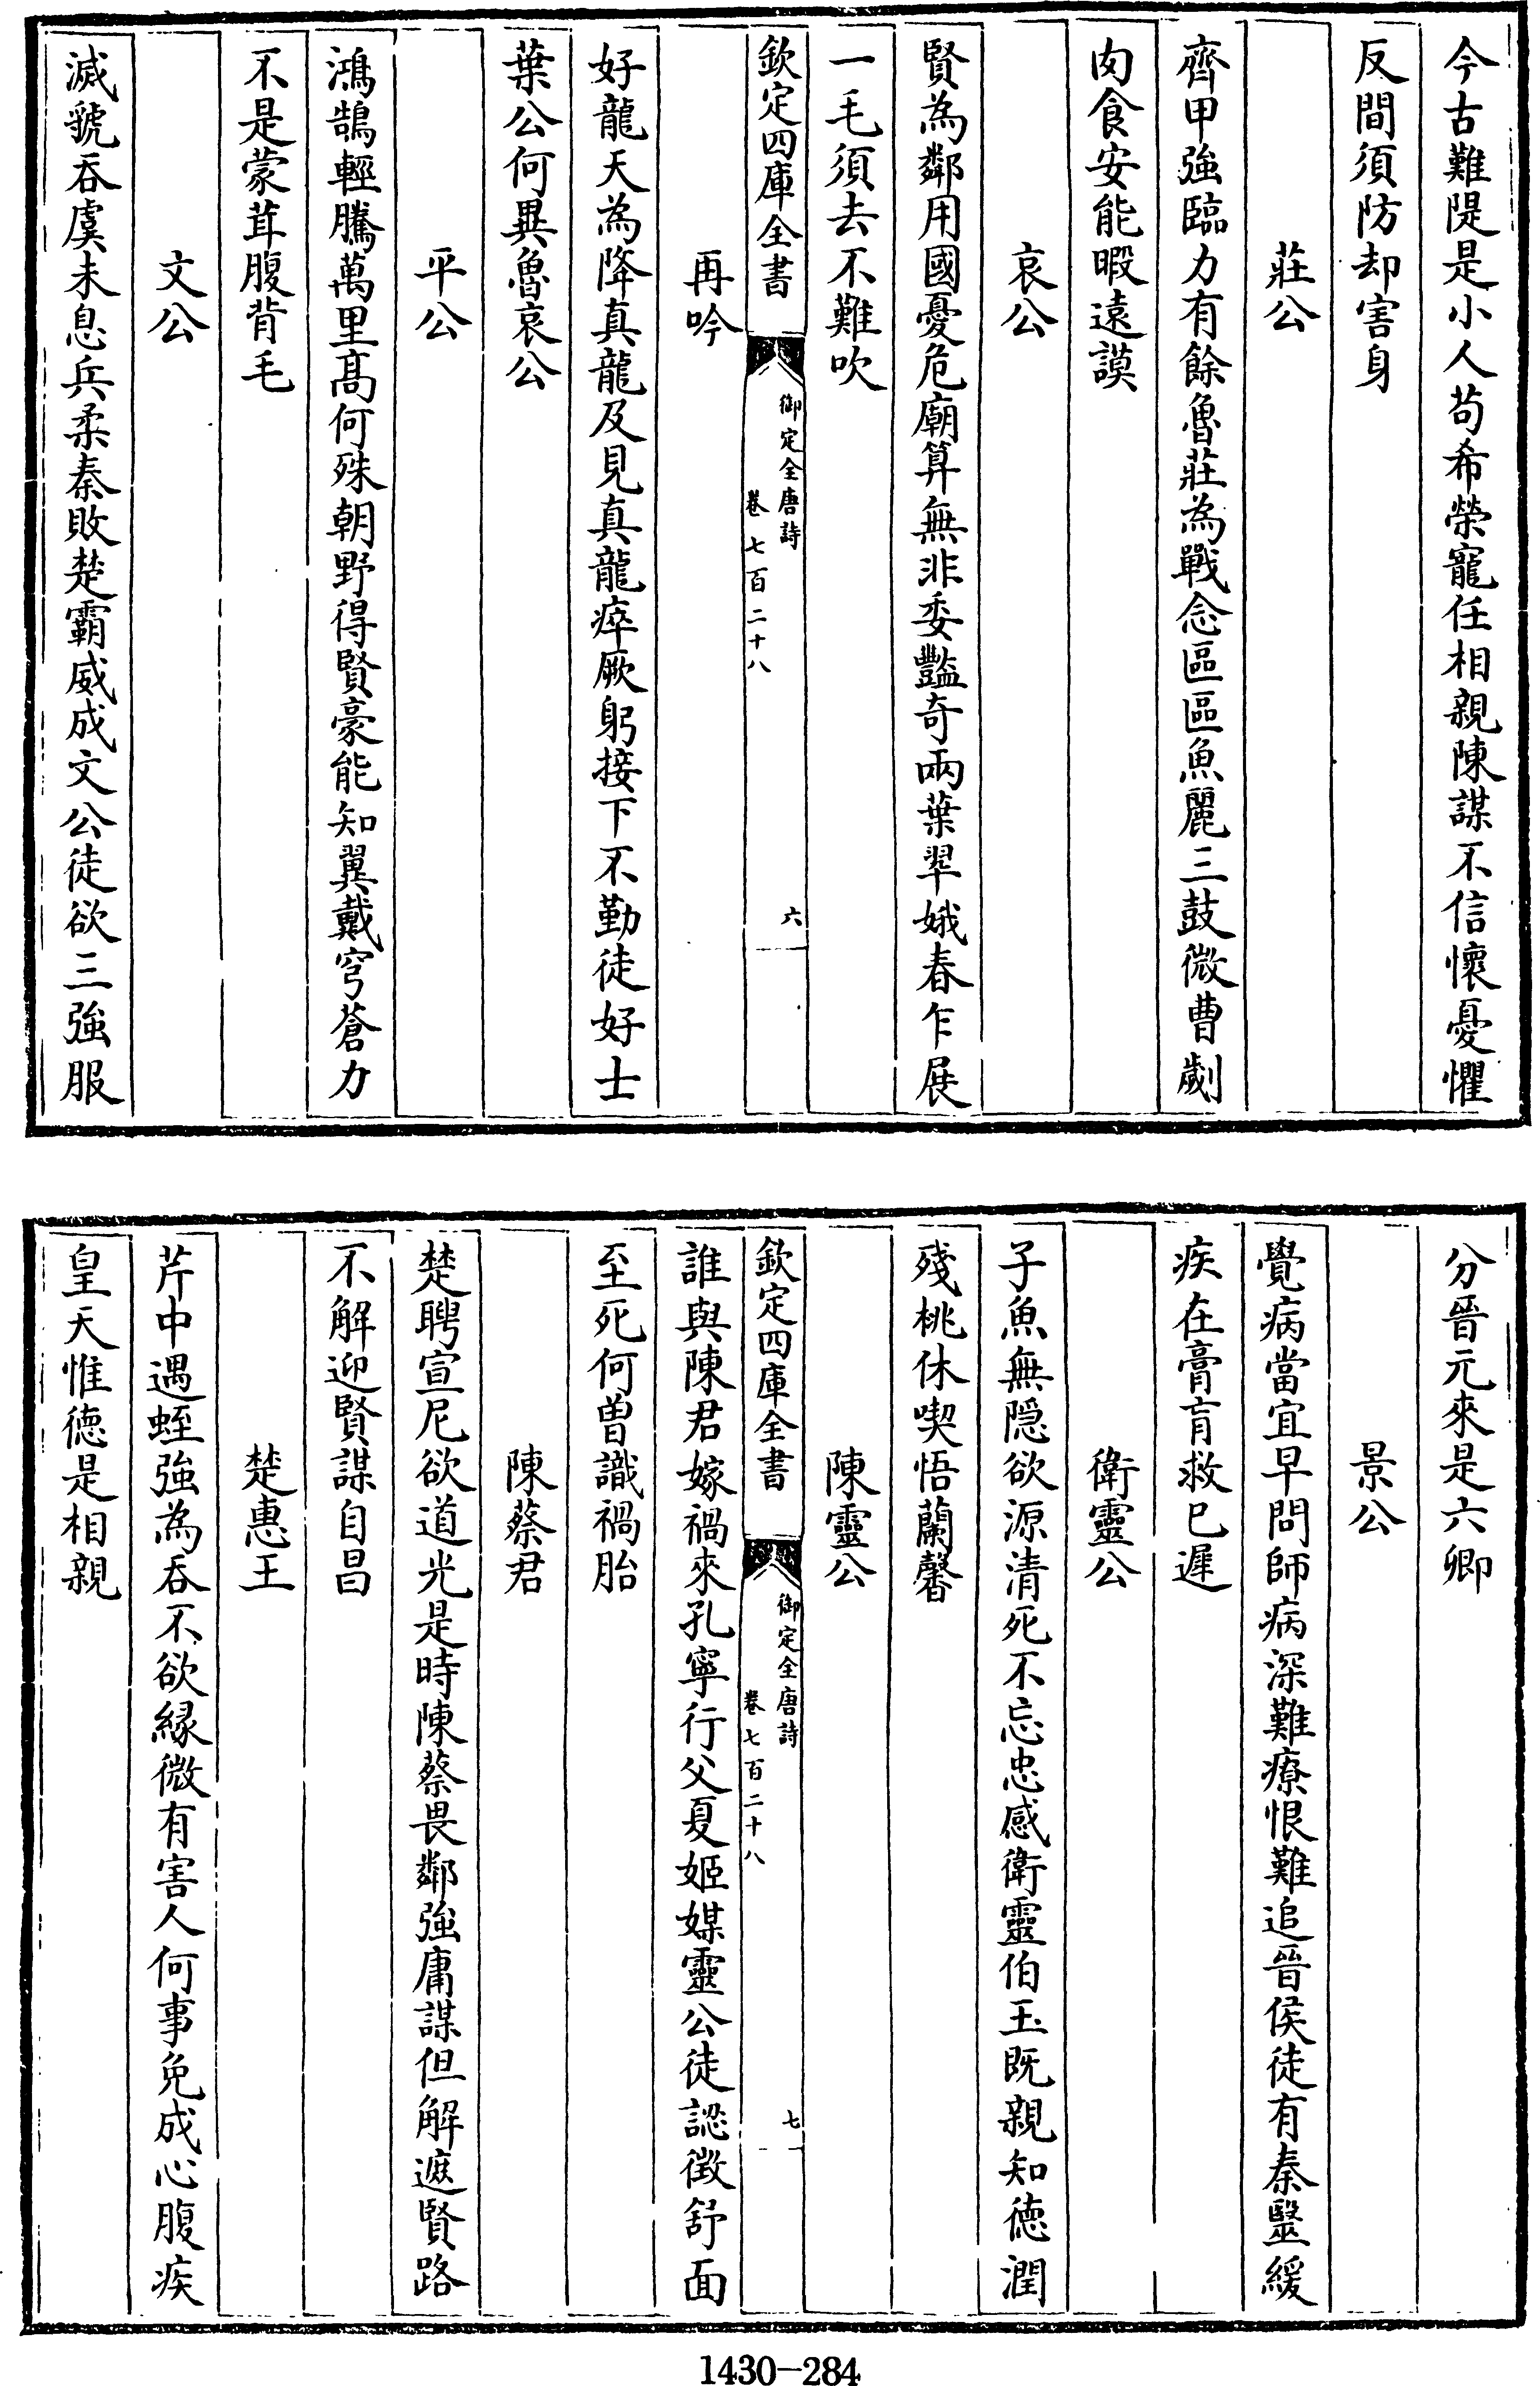 今古難隄是小人苟希榮寵任相親陳謀不信懷憂懼
反間須防却害身
莊公
齊甲強臨力有餘魯莊為戰念區區魚麗三鼓微曹劌
肉食安能暇遠謨
哀公
賢為鄰用國憂危廟算無非委豔奇兩葉翆娥春乍展
一毛須去不難吹
欽定四庫全書
御定全唐詩
卷七百二十八
六
再吟
好龍天為降真龍及見真龍瘁厥躬接下不勤徒好士
葉公何異魯哀公
平公
鴻鵠輕騰萬里高何殊朝野得賢豪能知翼戴穹蒼力
不是蒙茸腹背毛
文公
滅虢吞虞未息兵柔秦敗楚霸威成文公徒欲三強服
分晉元來是六卿
景公
覺病當宜早問師病深難療恨難追晉侯徒有秦毉緩
疾在膏肓救已遲
衛靈公
子魚無隠欲源清死不忘忠感衛靈伯玉既親知徳潤
殘桃休喫悟蘭馨
陳靈公
欽定四庫全書
御定全唐詩
卷七百二十八
七
誰與陳君嫁禍來孔寧行父夏姬媒靈公徒認徴舒面
至死何曽識禍胎
陳蔡君
楚聘宣尼欲道光是時陳蔡畏鄰強庸謀但解遮賢路
不解迎賢謀自昌
楚惠王
芹中遇蛭強為吞不欲縁微有害人何事免成心腹疾
皇天惟徳是相親
1430-284